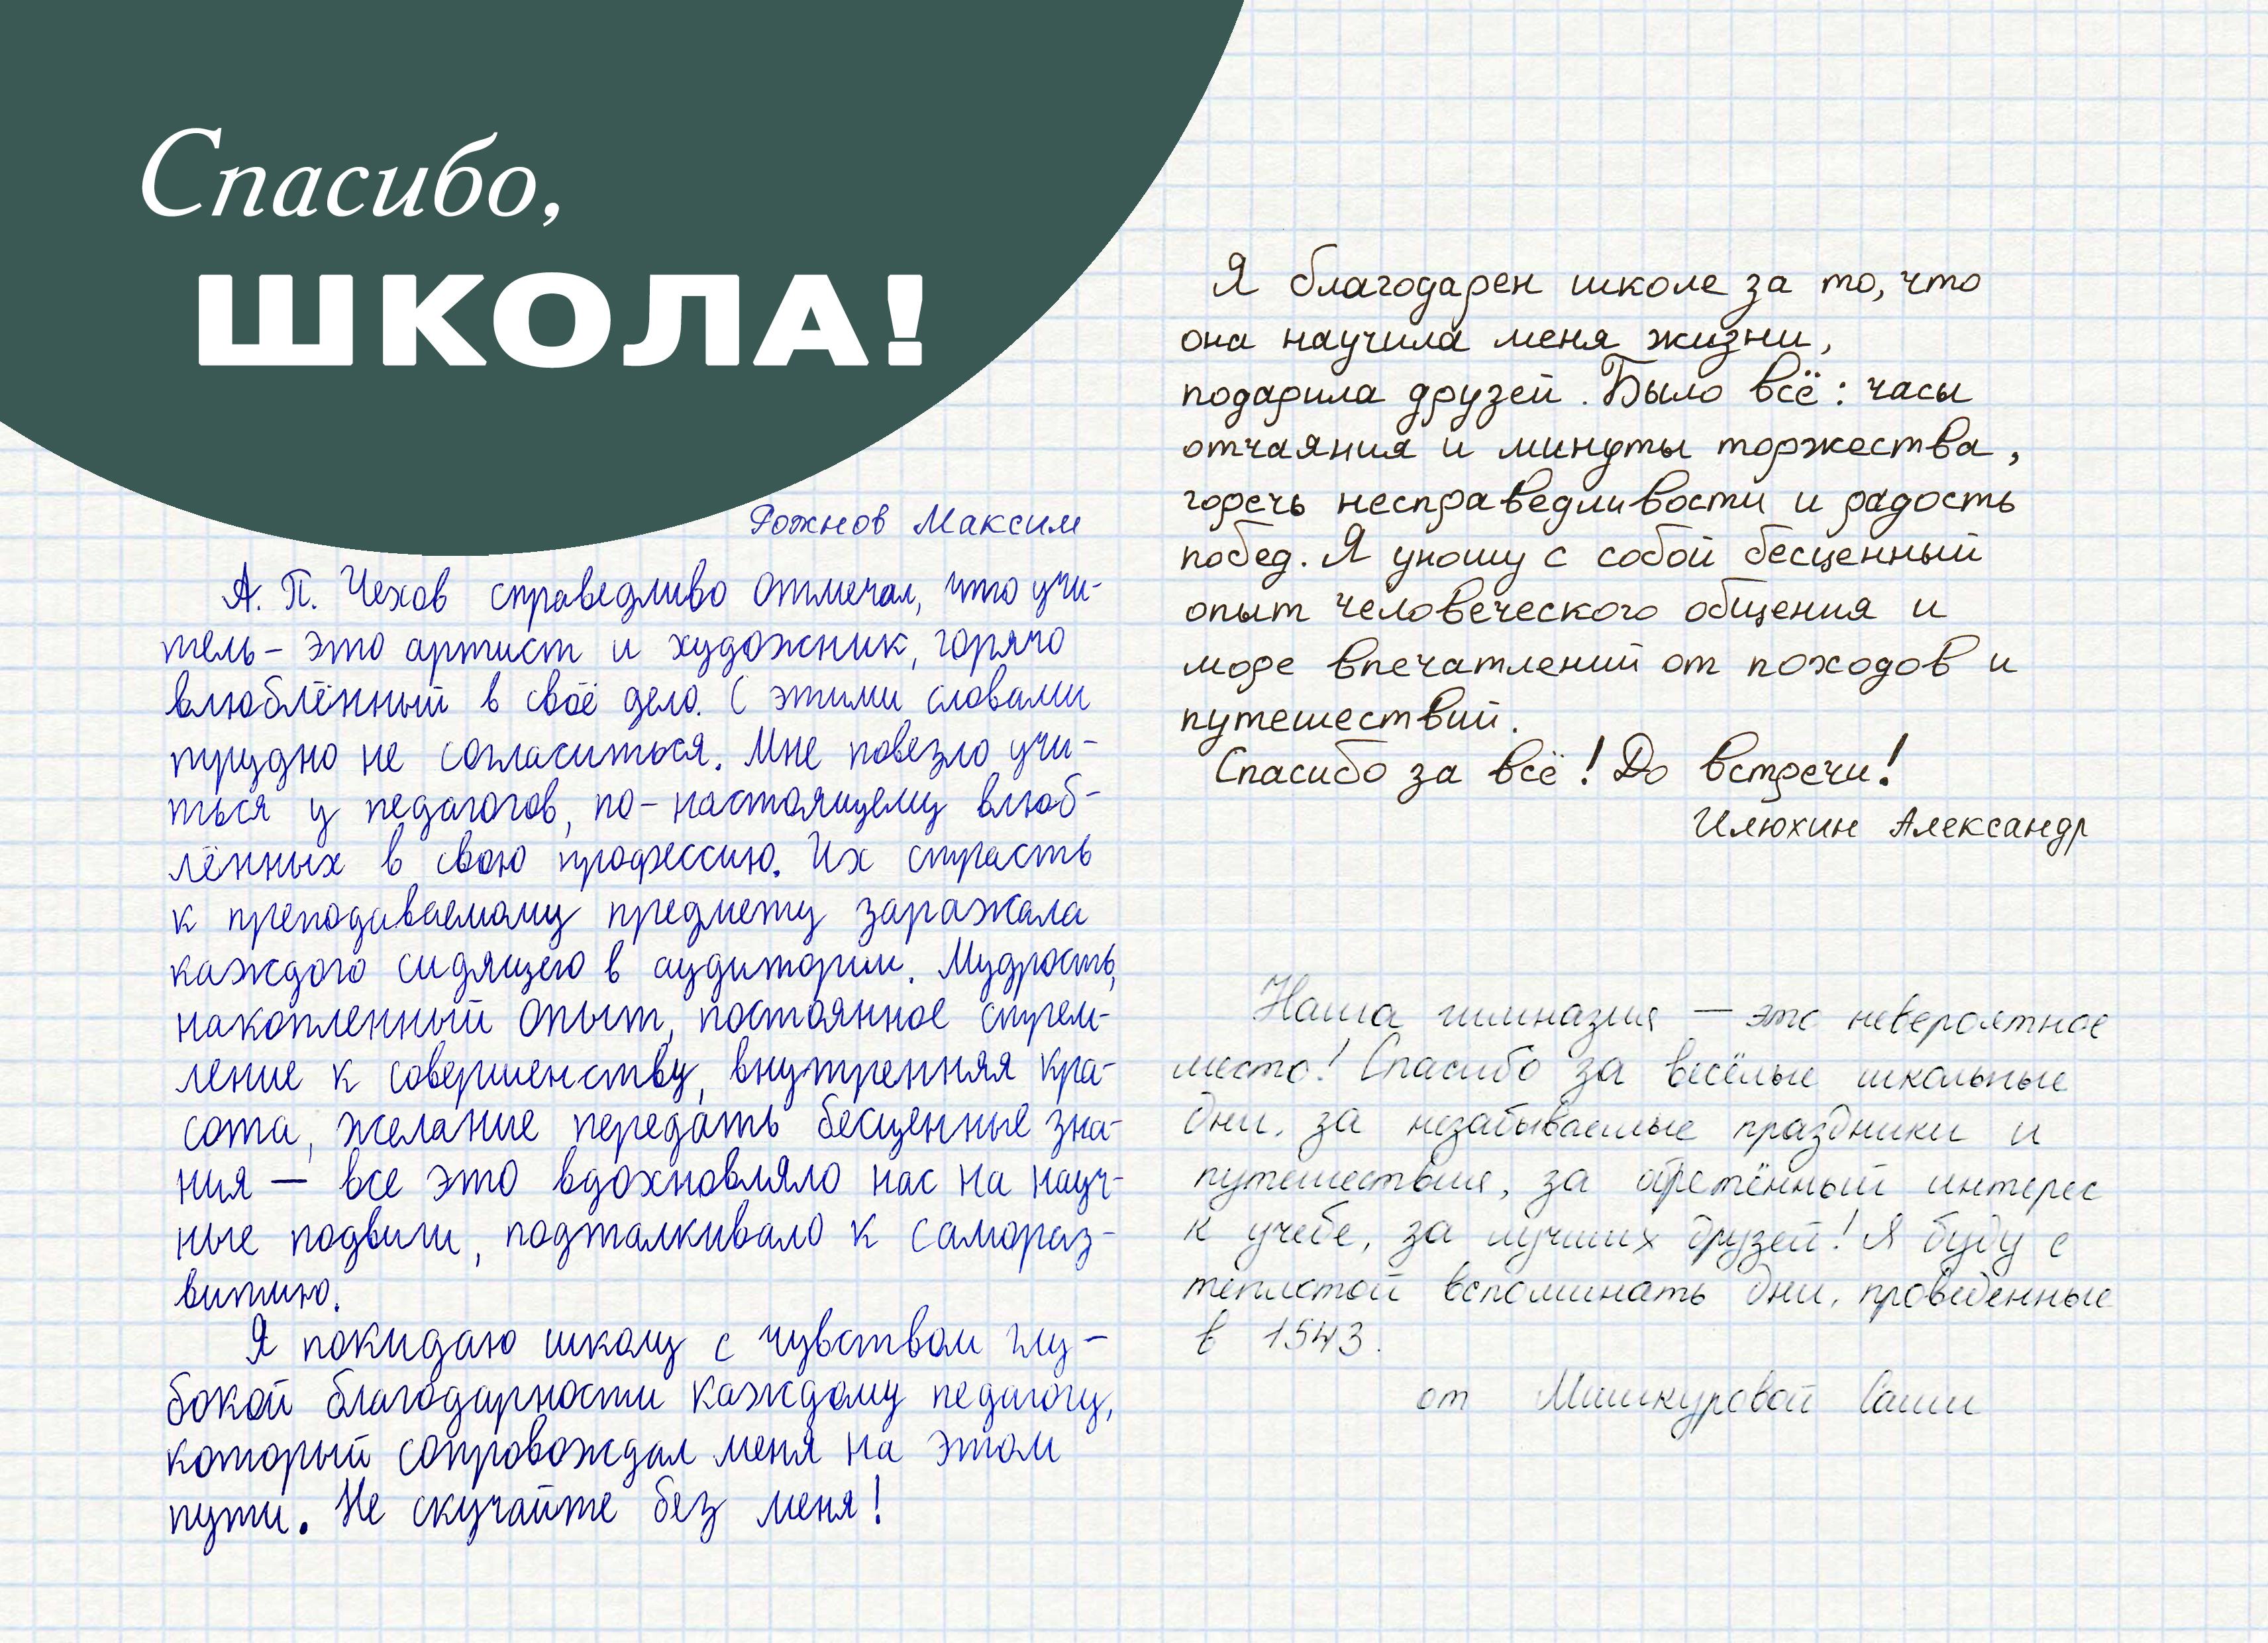 Спасибо,
ШКОЛА!
Рожнов Максим
А. П. Чехов справедливо отмечал, что учи-
тель – это артист и художник, горячо
влюблённый в своё дело. С этими словами
трудно не согласиться. Мне повезло учи-
ться у педагогов, по-настоящему влюб-
лённых в свою профессию. Их страсть
к преподаваемому предмету заражала
каждого сидящего в аудитории. Мудрость,
накопленный опыт, постоянное стрем-
ление к совершенству, внутренняя кра-
сота, желание передать бесценные зна-
ния — все это вдохновляло нас на науч-
ные подвиги, подталкивало к самораз-
витию.
Я покидаю школу с чувством глу-
бокой благодарности каждому педагогу,
который сопровождал меня на этом
пути. Не скучайте без меня!
Я благодарен школе за то, что
она научила меня жизни,
подарила друзей. Было всё: часы
отчаяния и минуты торжества,
горечь несправедливости и радость
побед. Я уношу с собой бесценный
опыт человеческого общения и
море впечатлений от походов и
путешествий.
Спасибо за всё! До встречи!
Илюхин Александр
Наша гимназия — это невероятное
место! Спасибо за весёлые школьные
дни, за незабываемые праздники и
путешествия, за обретённый интерес
к учебе, за лучших друзей! Я буду с
теплотой вспоминать дни, проведенные
в 1543.
от Мишкуровой Саши